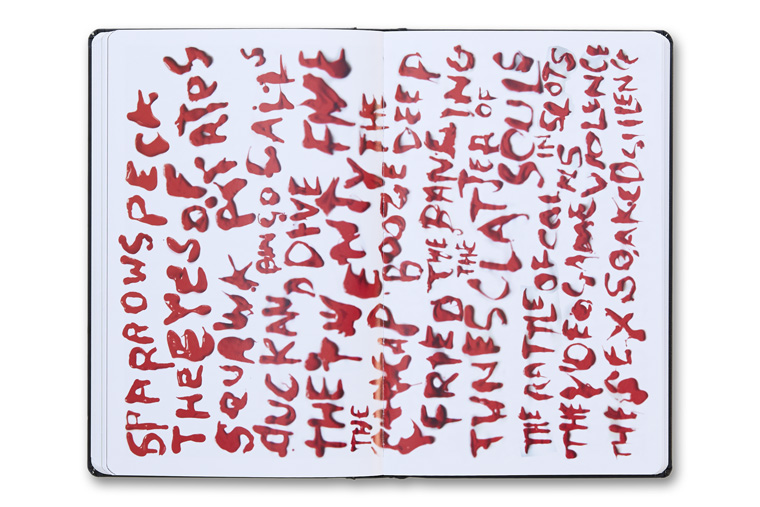 SPARROWS PECK
THE EYES OF
SQUAWK
DUCK AND DIVE
THE TWENTY FIVE
THE
CHEAP BOOZE DEEP
FRIED THE BANGING
TUNES THE CLATTER OF SOULS
THE RATTLE OF COINS IN SLOTS
THE VIDEO GAME VIOLENCE
THE SEX SOAKED SILENCE